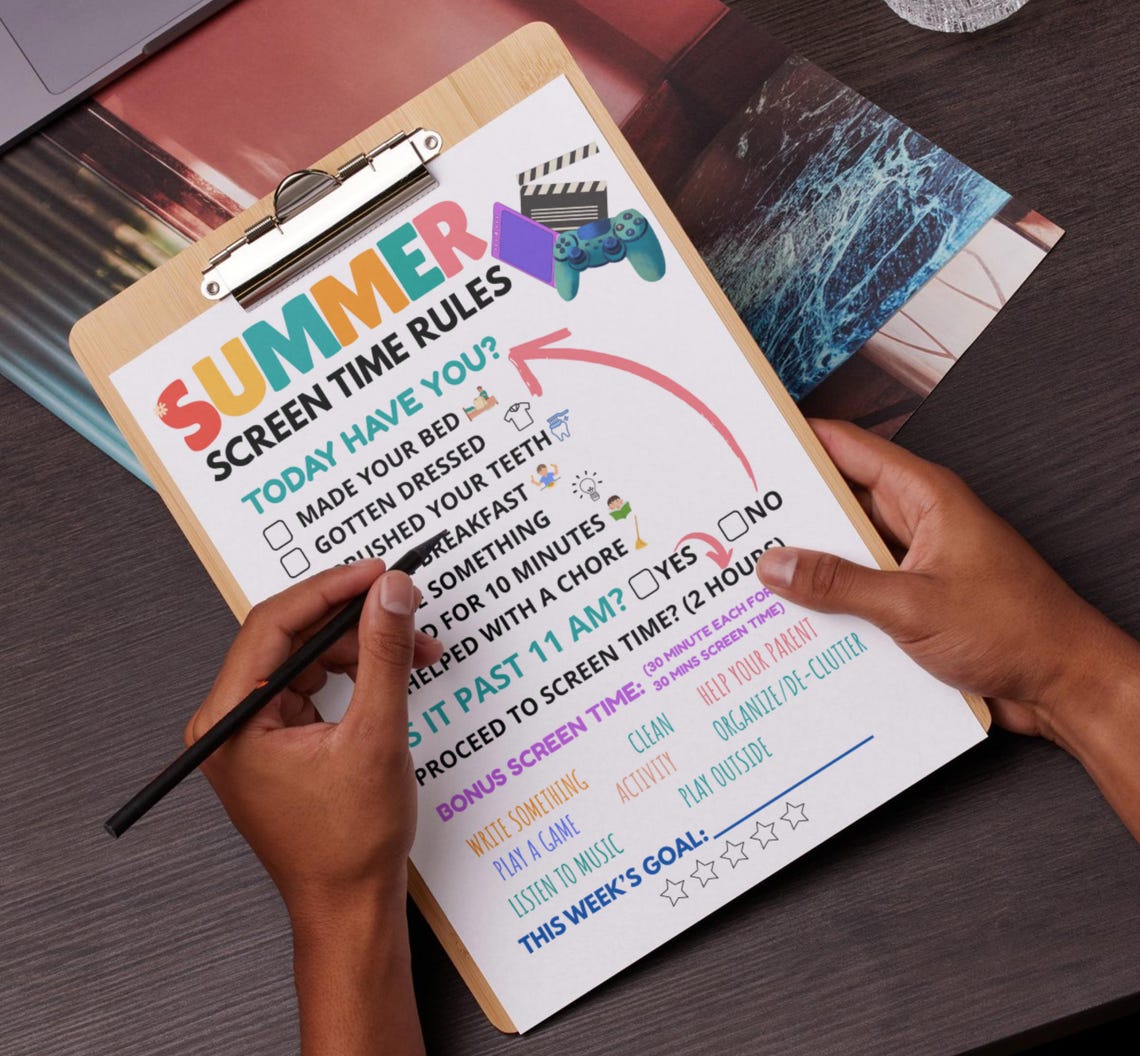 SUMMER
SCREEN TIME RULES
TODAY HAVE YOU?
MADE YOUR BED
GOTTEN DRESSED
RUSHED YOUR TEETH
BREAKFAST
SOMETHING
FOR 10 MINUTES
HELPED WITH A CHORE
IT PAST 11 AM? YES NO
PROCEED TO SCREEN TIME? (2 HOURS)
BONUS SCREEN TIME: (30 MINUTE EACH FOR
30 MINS SCREEN TIME)
WRITE SOMETHING CLEAN HELP YOUR PARENT
PLAY A GAME ACTIVITY ORGANIZE/DE-CLUTTER
LISTEN TO MUSIC PLAY OUTSIDE
THIS WEEK'S GOAL: